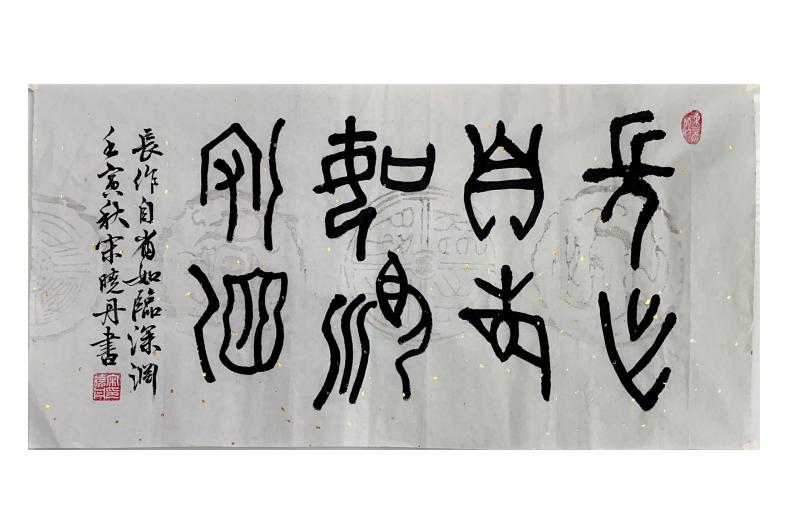 長乍
自省
如臨
深淵
長作自省如臨深淵
壬寅秋宋曉丹書